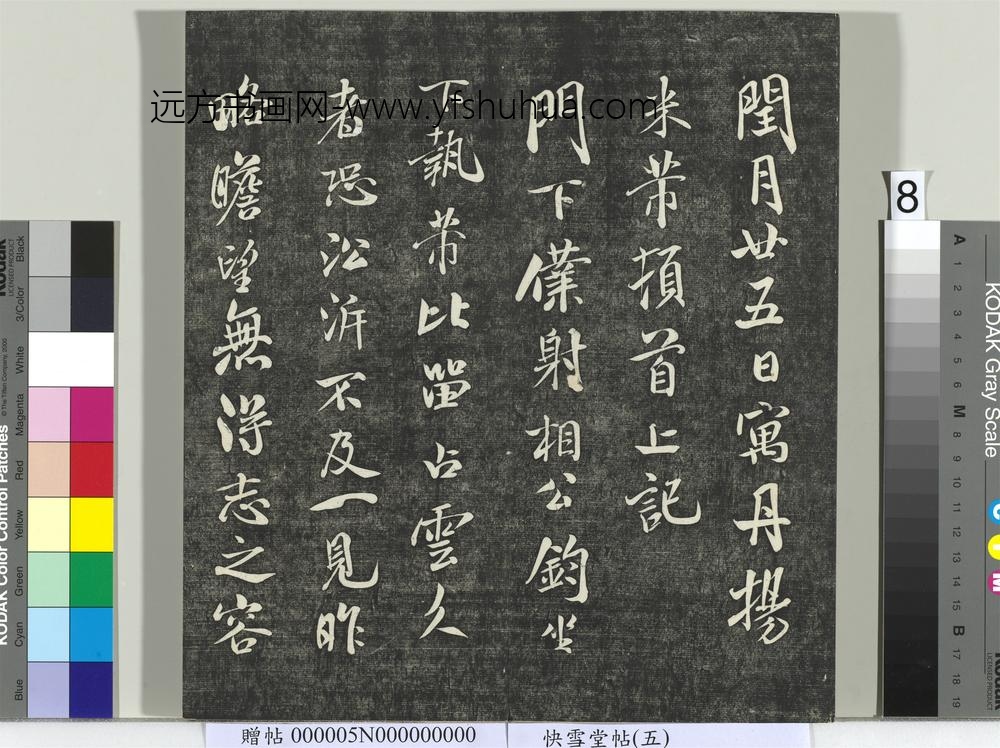 閏月廿五日寓丹揚
米芾頓首上記
門下僕射相公鈞坐
下執芾比留占雲久
者恐㳂泝不及一見昨
瞻望無淂志之容
远方书画网-www.yfshuhua.com
8
KODAK Gray Scale
A 1 2 3 4 5 6 M 8 9 10 11 12 13 14 15 B 17 18 19
KODAK Color Control Patches
Blue Cyan Green Yellow Red Magenta White 3/Color Black
Kodak
LICENSED PRODUCT
© The Tiffen Company, 2000
贈帖 000005N000000000
快雪堂帖(五)